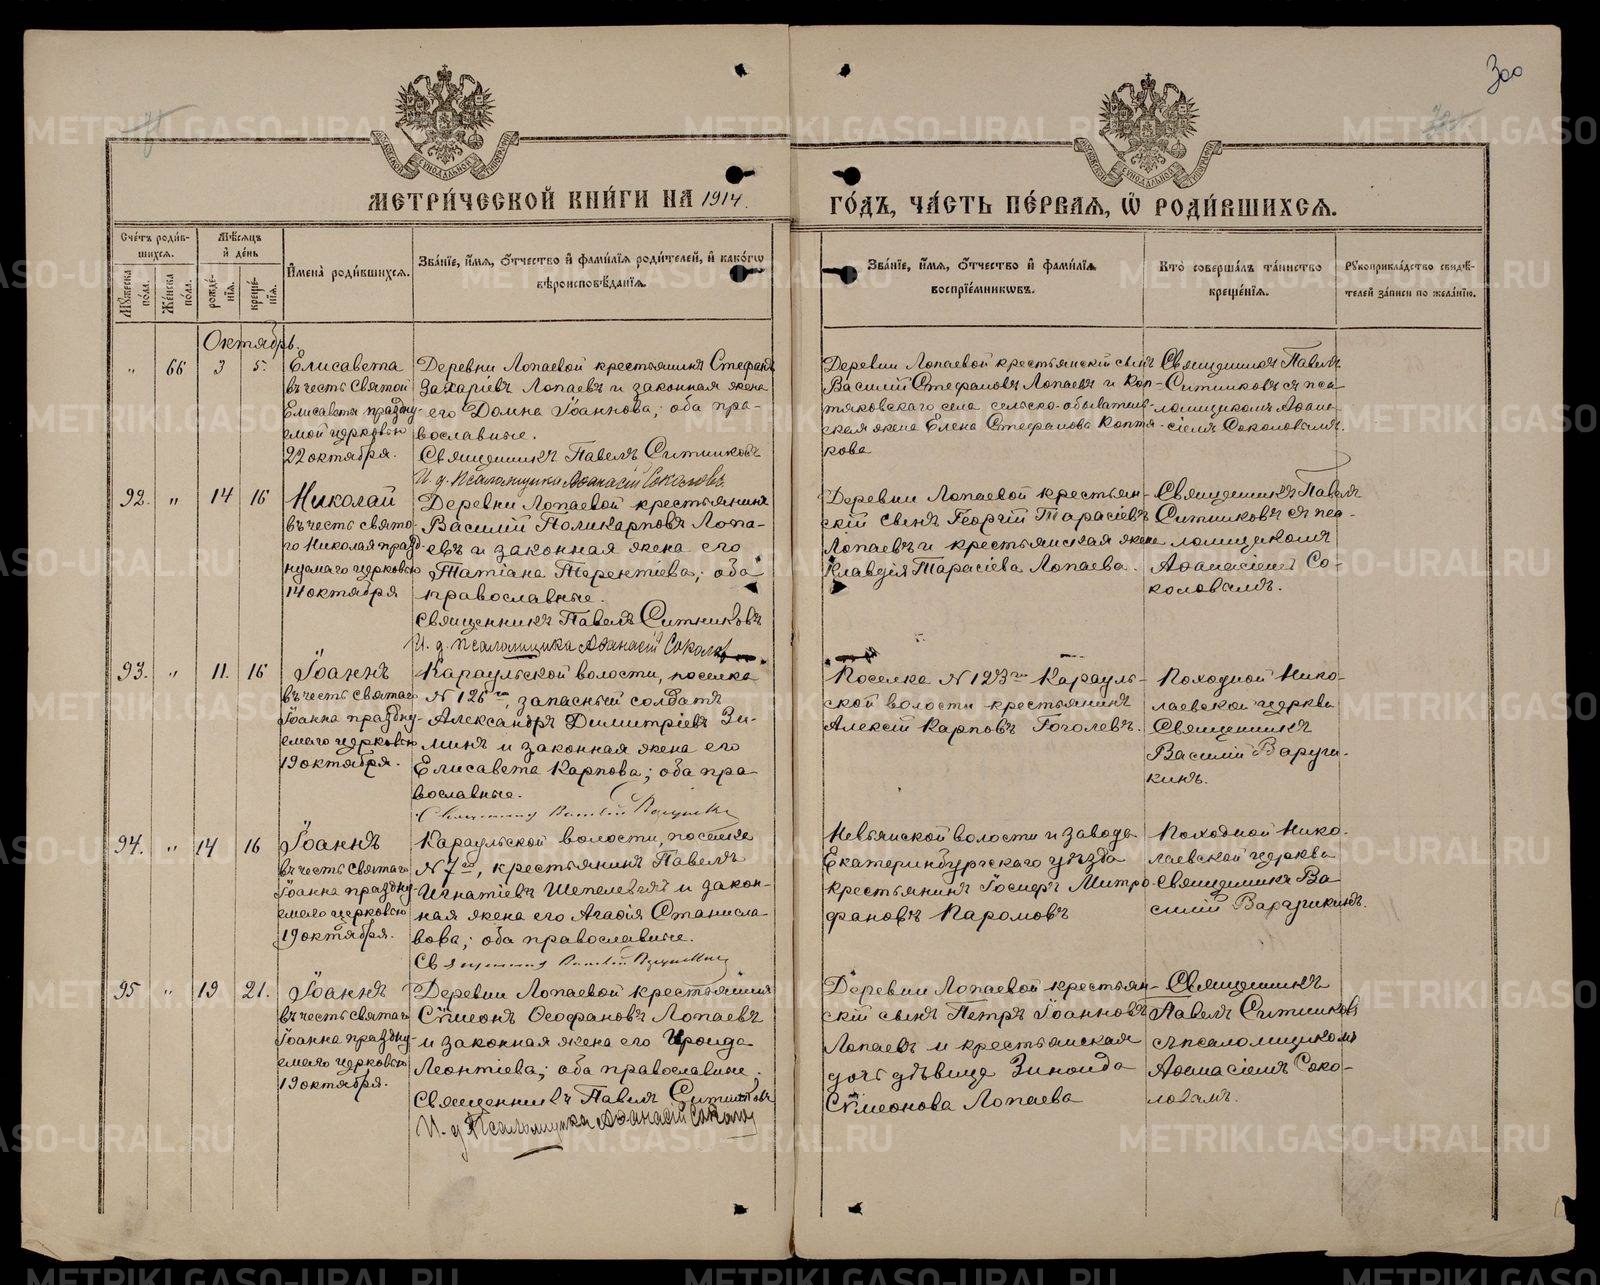 300
МЕТРИ́ЧЕСКОЙ КНИ́ГИ НА 1914 ГО́ДЪ, ЧА́СТЬ ПЕ́РВАЯ, Ѡ РОДИ́ВШИХСЯ.
Сче́тъ роди́в-
шихся.
Мꙋ́жеска по́ла.
Же́нска по́ла.
Мѣ́сяцъ и де́нь
рожде́-
нїя.
креще́-
нїя.
Имена̀ роди́вшихся.
Зва́нїе, и́мя, о́тчество и фами́лїя роди́телей, и како́гѡ
вѣроисповѣ́данїя.
Зва́нїе, и́мя, о́тчество и фами́лїя
воспрїе́мникѡвъ.
Кто̀ соверша́лъ та́инство
креще́нїя.
Рꙋкоприкла́дство свидѣ́-
телей за́писи по жела́нїю.
Октябрь.
" 66 3 5.
Елисавета
въ честь Святой
Елисаветы праздну-
емой церковью
22 октября.
Деревни Лопаевой крестьянинъ Стефанъ
Захаріевъ Лопаевъ и законная жена
его Домна Іоаннова; оба пра-
вославные.
Священникъ Павелъ Ситниковъ
И. д. псаломщика Аѳанасій Соколовъ
Деревни Лопаевой крестьянскій сынъ
Василій Стефановъ Лопаевъ и Коп-
тяковскаго села сельско-обыватель-
ская жена Елена Стефанова Коптя-
кова
Священникъ Павелъ
Ситниковъ съ пса-
ломщикомъ Аѳана-
сіемъ Соколовымъ.
92. " 14 16
Николай
въ честь свято-
го Николая празд-
нуемаго церковью
14 октября
Деревни Лопаевой крестьянинъ
Василій Поликарповъ Лопа-
евъ и законная жена его
Татіана Терентіева; оба
православные.
Священникъ Павелъ Ситниковъ
И. д. псаломщика Аѳанасій Соколовъ
Деревни Лопаевой крестьян-
скій сынъ Георгій Тарасіевъ
Лопаевъ и крестьянская жена
Клавдія Тарасіева Лопаева.
Священникъ Павелъ
Ситниковъ съ пса-
ломщикомъ
Аѳанасіемъ Со-
коловымъ.
93. " 11. 16
Іоаннъ
въ честь святаго
Іоанна праздну-
емаго церковью
19 октября.
Караульской волости, поселка
N 126го, запасный солдатъ
Александръ Димитріевъ Зи-
минъ и законная жена его
Елисавета Карпова; оба пра-
вославные.
Священникъ Василій Варушкинъ
Поселка N 123го Карауль-
ской волости крестьянинъ
Алексій Карповъ Гоголевъ.
Походной Нико-
лаевской церкви
Священникъ
Василій Варуш-
кинъ.
94. " 14 16
Іоаннъ
въ честь святаго
Іоанна праздну-
емаго церковью
19 октября.
Караульской волости, поселка
N 7го, крестьянинъ Павелъ
Игнатіевъ Шепелевъ и закон-
ная жена его Агаѳія Станисла-
вова; оба православные.
Священникъ Василій Варушкинъ
Невьянской волости и завода
Екатеринбургскаго уѣзда
крестьянинъ Іосифъ Митро-
фановъ Паромовъ
Походной Нико-
лаевской церкви
Священникъ Ва-
силій Варушкинъ.
95 " 19 21.
Іоаннъ
въ честь святаго
Іоанна праздну-
емаго церковью
19 октября.
Деревни Лопаевой крестьянинъ
Сѵмеонъ Ѳеофановъ Лопаевъ
и законная жена его Ироида
Леонтіева; оба православные.
Священникъ Павелъ Ситниковъ
И. д. Псаломщика Аѳанасій Соколовъ
Деревни Лопаевой крестьян-
скій сынъ Петръ Іоанновъ
Лопаевъ и крестьянская
дочь дѣвица Зинаида
Сѵмеонова Лопаева
Священникъ
Павелъ Ситниковъ
съ псаломщикомъ
Аѳанасіемъ Соко-
ловымъ.
METRIKI.GASO-URAL.RU